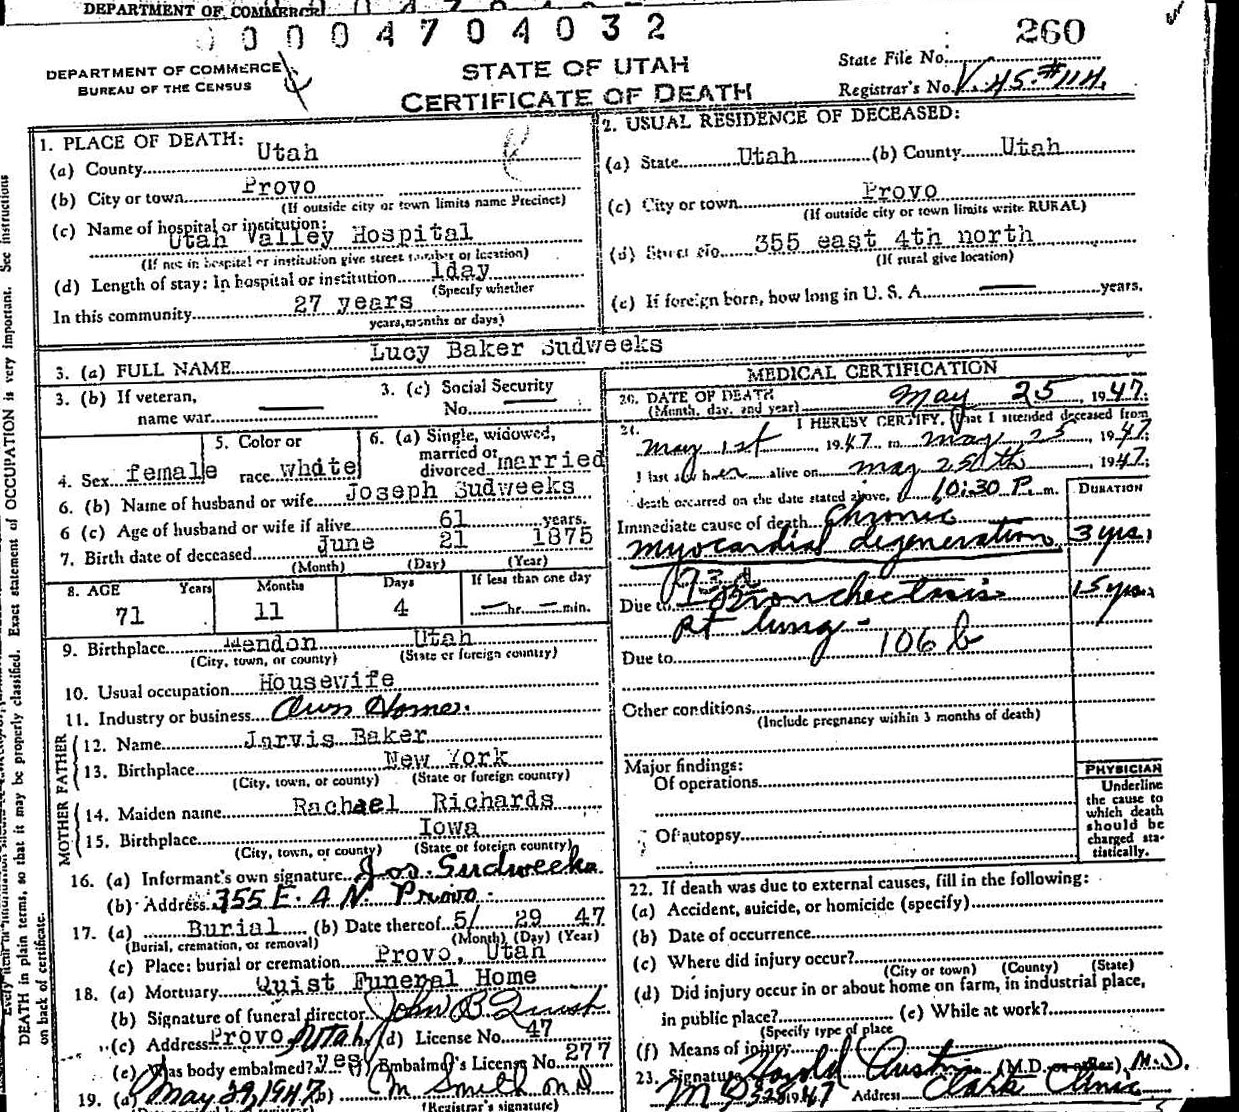 DEPARTMENT OF COMMERCE
0 0 0 4 7 0 4 0 3 2
260
DEPARTMENT OF COMMERCE
BUREAU OF THE CENSUS
STATE OF UTAH
CERTIFICATE OF DEATH
State File No.
Registrar's No. V. 45-#114.
1. PLACE OF DEATH:
(a) County Utah
(b) City or town Provo
(If outside city or town limits name Precinct)
(c) Name of hospital or institution:
Utah Valley Hospital
(If not in hospital or institution give street number or location)
(d) Length of stay: In hospital or institution 1day
(Specify whether
In this community 27 years
years, months or days)
2. USUAL RESIDENCE OF DECEASED:
(a) State Utah (b) County Utah
(c) City or town Provo
(If outside city or town limits write RURAL)
(d) Street No. 355 east 4th north
(If rural give location)
(e) If foreign born, how long in U. S. A. — years.
3. (a) FULL NAME Lucy Baker Sudweeks
3. (b) If veteran,
name war —
3. (c) Social Security
No. —
4. Sex female
5. Color or
race white
6. (a) Single, widowed,
married or
divorced married
6. (b) Name of husband or wife Joseph Sudweeks
6 (c) Age of husband or wife if alive 61 years.
7. Birth date of deceased June 21 1875
(Month) (Day) (Year)
8. AGE Years Months Days If less than one day
71 11 4 — hr. — min.
9. Birthplace Mendon Utah
(City, town, or county) (State or foreign country)
10. Usual occupation Housewife
11. Industry or business Own Home.
FATHER
12. Name Jarvis Baker
13. Birthplace New York
(City, town, or county) (State or foreign country)
MOTHER
14. Maiden name Rachael Richards
15. Birthplace Iowa
(City, town, or county) (State or foreign country)
16. (a) Informant's own signature Jos. Sudweeks
(b) Address 355 E. 4 N. Provo.
17. (a) Burial (b) Date thereof 5/ 29 47
(Burial, cremation, or removal) (Month) (Day) (Year)
(c) Place: burial or cremation Provo, Utah
18. (a) Mortuary Quist Funeral Home
(b) Signature of funeral director John B Quist
(c) Address Provo, Utah. (d) License No. 47
(e) Was body embalmed? yes (f) Embalmer's License No. 277
19. (a) May 29, 1947 (b) M Smith MD
(Registrar's signature)
MEDICAL CERTIFICATION
20. DATE OF DEATH May 25, 1947.
(Month, day, and year)
21. I HEREBY CERTIFY, that I attended deceased from
May 1st 1947 to May 25 1947;
I last saw her alive on May 25th 1947;
death occurred on the date stated above, 10:30 P. m.
DURATION
Immediate cause of death Chronic
myocardial degeneration 3 yrs.
93d
Due to Bronchectasis 15 yrs.
Rt lung - 106 b
Due to
Other conditions
(Include pregnancy within 3 months of death)
Major findings:
Of operations
Of autopsy
PHYSICIAN
Underline
the cause to
which death
should be
charged sta-
tistically.
22. If death was due to external causes, fill in the following:
(a) Accident, suicide, or homicide (specify)
(b) Date of occurrence
(c) Where did injury occur?
(City or town) (County) (State)
(d) Did injury occur in or about home on farm, in industrial place,
in public place? (e) While at work?
(Specify type of place
(f) Means of injury
23. Signature Harold Austin (M.D. or other) M.D.
1947 Address Clark Clinic
See instructions
DEATH in plain terms, so that it may be properly classified. Exact statement of OCCUPATION is very important.
on back of certificate.